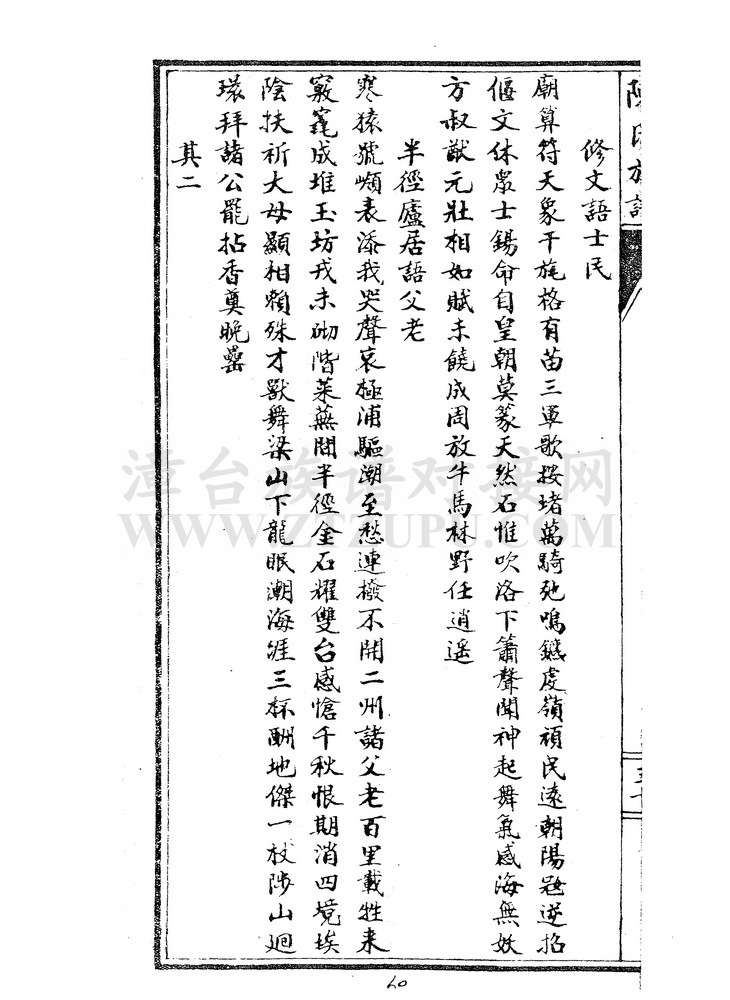 陳氏族譜
修文語士民
廟算符天象干旄格有苗三軍歌按堵萬騎弛鳴鑣虔嶺頑民遠朝陽寇逆招
偃文休眾士錫命自皇朝莫篆天然石惟吹洛下簫聲聞神起舞氣感海無妖
方叔猷元壯相如賦未饒成周放牛馬林野任逍遥
半徑廬居語父老
寒猿號嶺表添我哭聲哀極浦驅潮至愁連撥不開二州諸父老百里載牲来
窾窀成堆玉坊戎未砌階萊蕪開半徑金石耀雙台感愴千秋恨期消四境埃
陰扶祈大母顯相賴殊才獸舞梁山下龍眠潮海涯三杯酬地傑一杖陟山廻
環拜諸公罷拈香奠晚罍
其二
五十
漳台族谱对接网
WWW.ZTZUPU.COM
60